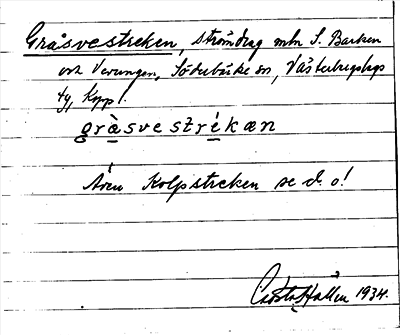 Gråsvestreken, strömdrag mln S. Barken
och Verungen, Söderbärke sn, Västerbergslags
tg, Kopp.
gràsvestrékæn
Även Kolpstreken se d. o!
Gösta Hallén 1934.